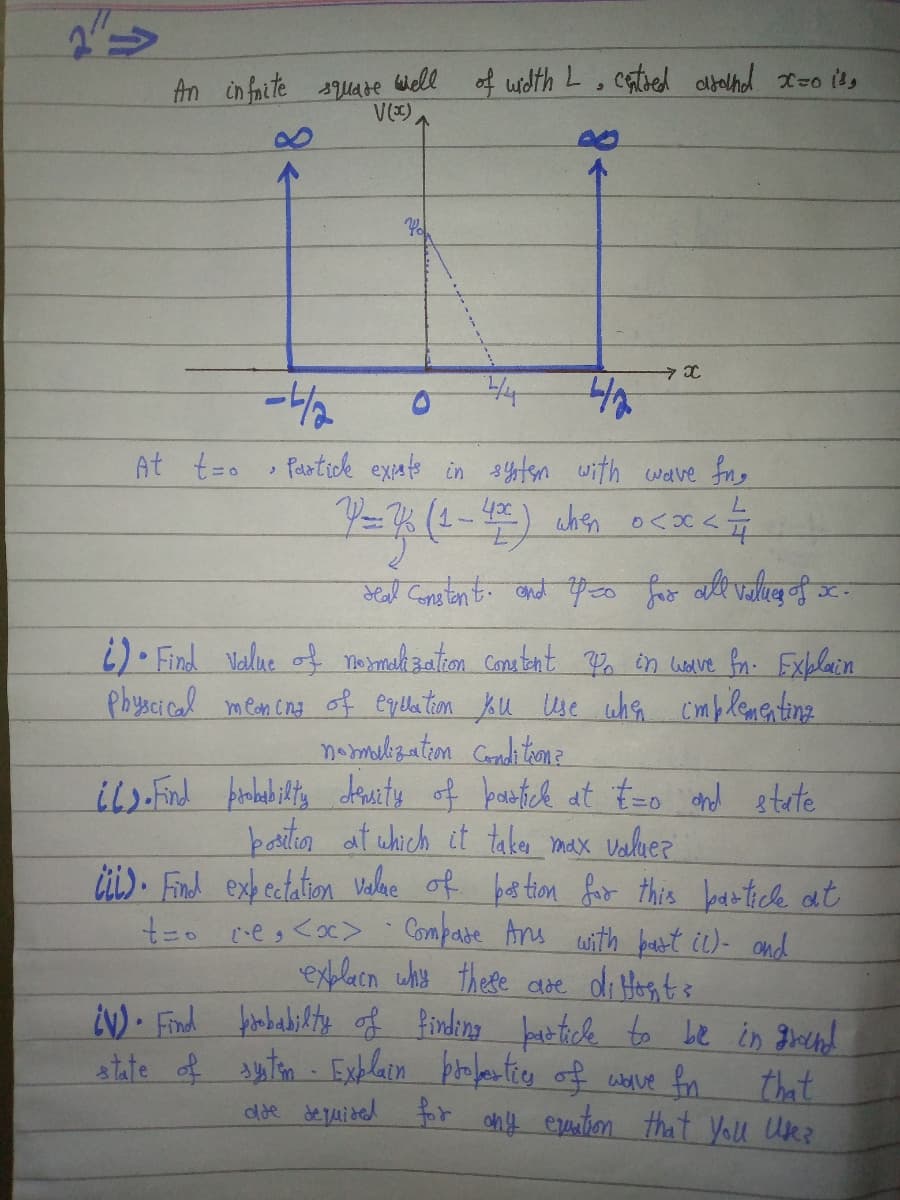 2" ⇒
An infnite square well of width L, centred around x=0 is,
V(x)
∞ ∞
ψ₀
x
-L/2 0 L/4 L/2
At t=0, Particle exists in system with wave fn,
ψ=ψ₀(1-4x/L) when 0<x<L/4
real Constant. and ψ=0 for all values of x.
i). Find Value of normalization Constant ψ₀ in wave fn. Explain
Physcical meaning of equation you use when implementing
normalization Condition?
ii). Find probabilty density of particle at t=0 and state
position at which it takes max value?
iii). Find expectation value of postion for this particle at
t=0 i.e, <x>. Compare Ans with part ii)- and
explain why these are diffrent?
iv). Find probabilty of finding particle to be in ground
state of system. Explain properties of wave fn that
are required for any equation that you use?